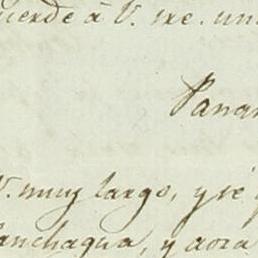 uerde á V. me. un
Panam
V. muy largo, y si
anchagua, y aora